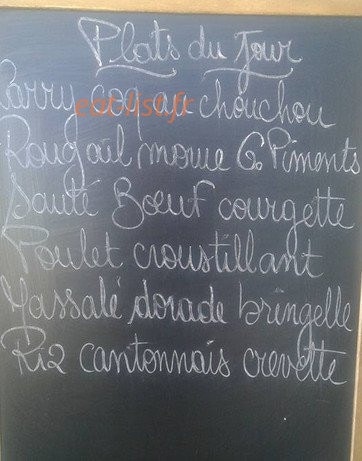 Plats du Jour
Carry coq au chouchou
eat-list.fr
Rougail morue G. Piments
Sauté Boeuf courgette
Poulet croustillant
Massalé dorade bringelle
Riz cantonnais crevette